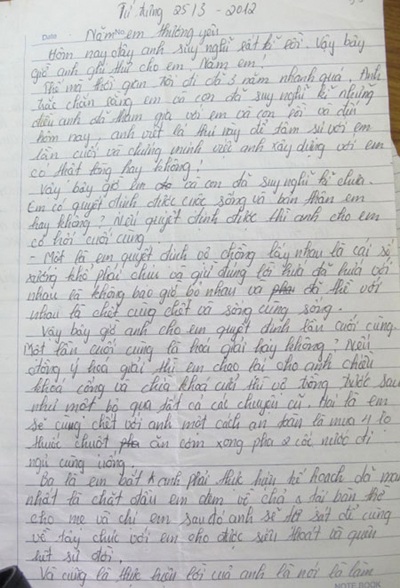 Tử hưng 25/3 - 2012
Date No
Năm em thương yêu
Hôm nay đây anh suy nghĩ rất kĩ rồi. Vậy bây
giờ anh ghi thư cho em Năm em!
Thế mà thời gian trôi đi đã 3 năm nhanh quá, Anh
chắc rằng em và con đã suy nghĩ kĩ những
điều anh đã tham gia với em và con rồi và đến
hôm nay, anh viết lá thư này để tâm sự với em
lần cuối và chứng minh việc anh xây dựng với em
có thật lòng hay không!
Vậy bây giờ em và con đã suy nghĩ kĩ chưa.
Em có quyết định được cuộc sống và bản thân em
hay không? Nếu quyết định được thì anh cho em
cơ hội cuối cùng.
- Một là em quyết định vợ chồng lấy nhau là cái số
sướng khổ phải chịu và giữ đúng lời hứa đã hứa với
nhau là không bao giờ bỏ nhau và đã thì với
nhau là chết cùng chết và sống cùng sống.
Vậy bây giờ anh cho em quyết định lần cuối cùng.
Một lần cuối cùng là hoà giải hay không? Nếu
đồng ý hoà giải thì em trao lại cho anh chiếc
khoá cổng và chìa khoá cưới thì vợ chồng trước sau
như một bỏ qua tất cả các chuyện cũ. Hai là em
sẽ cùng chết với anh một cách an toàn là mua 4 lọ
thuốc chuột ăn cơm xong pha 2 cốc nước đi
ngủ cùng uống.
Ba là em bắt anh phải thực hiện kế hoạch dã man
nhất là chặt đầu em đem về chả tại bàn thờ
cho mẹ và chị em sau đó anh sẽ tự sát để cùng
về tây chức với em cho được siêu thoát và quên
hết sự đời.
Và cũng là thực hiện lời của anh là nói là làm
NOTE BOOK